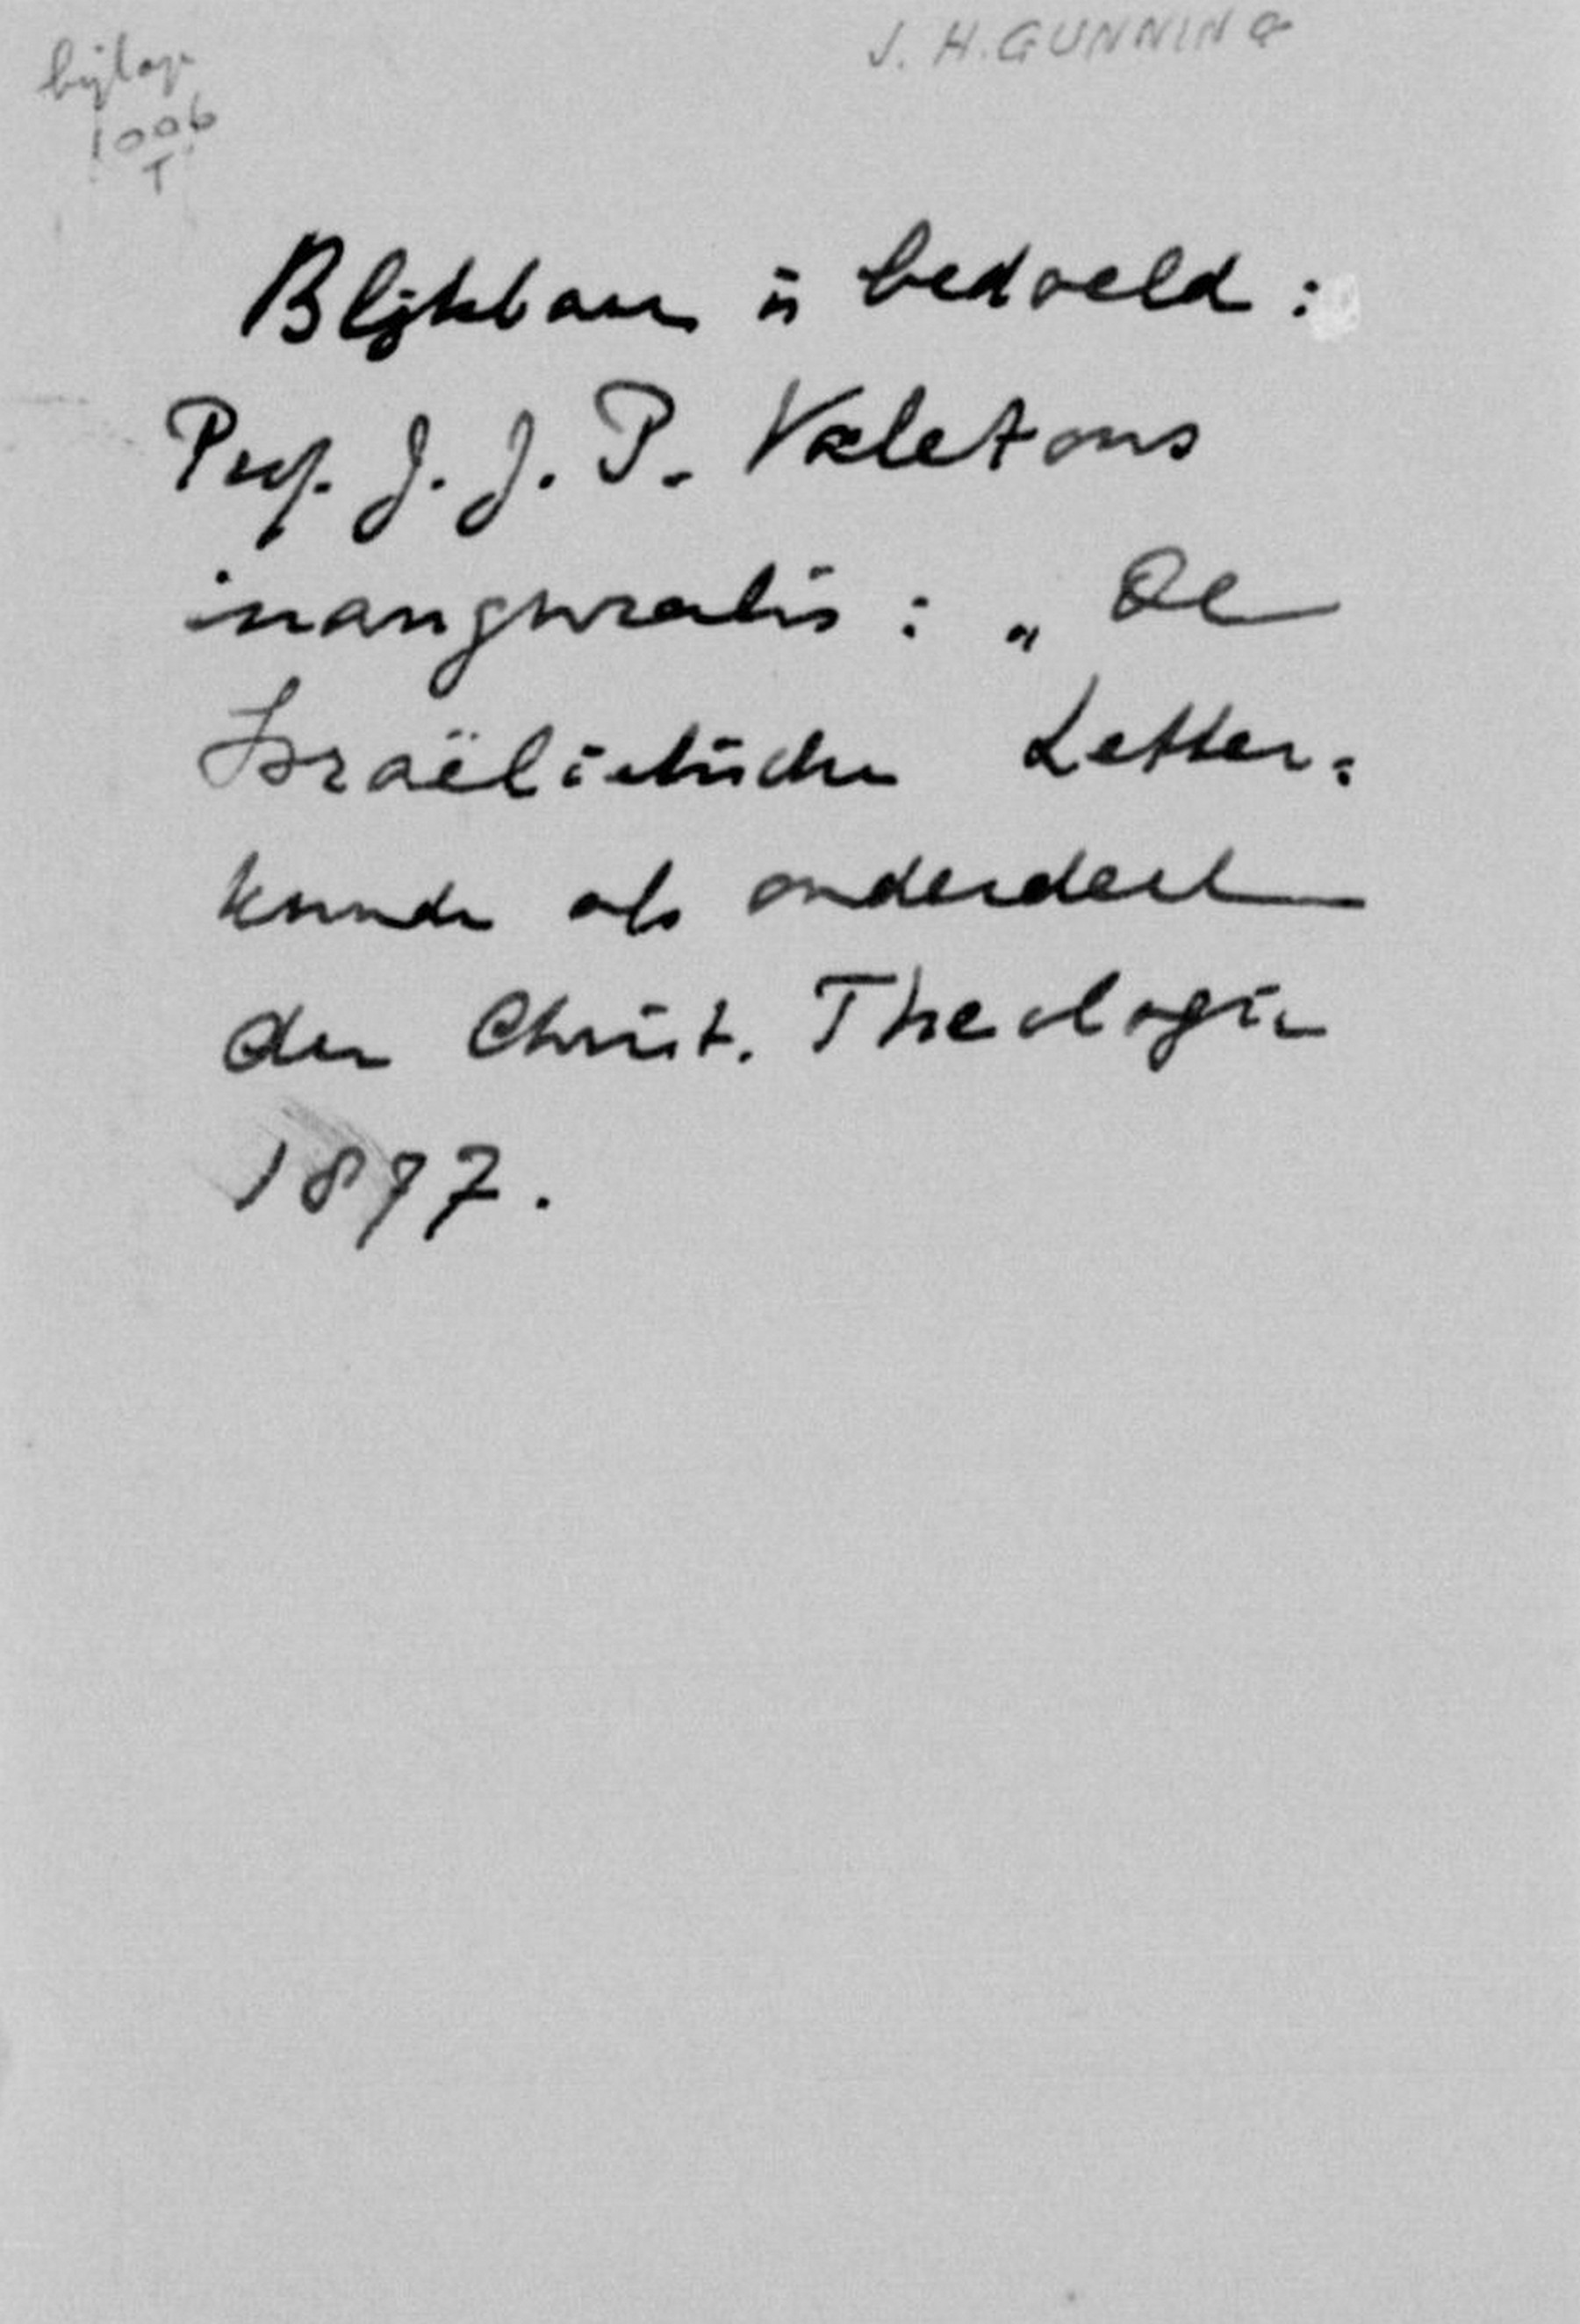 J. H. GUNNING
bijlage
1006
T
Blijkbaar is bedoeld:
Prof. J. J. P. Valetons
inauguralis: „De
Israëlietische Letter=
kunde als onderdeel
der Christ. Theologie
1877.